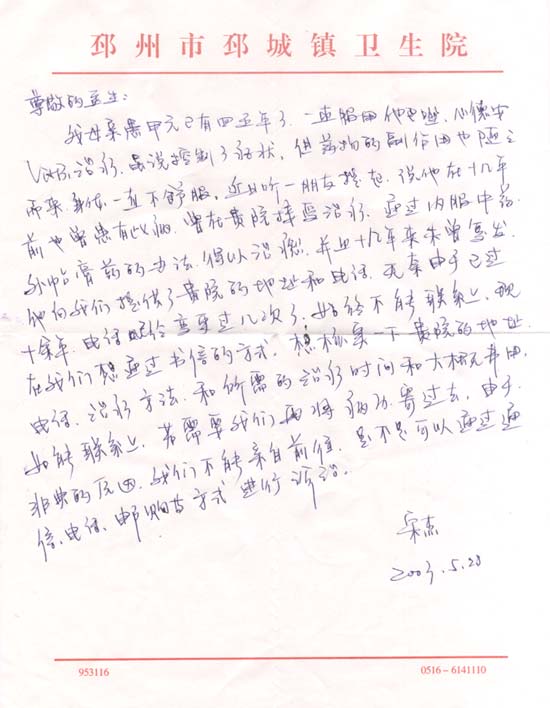 邳州市邳城镇卫生院
尊敬的医生:
我母亲患甲亢已有四五年了,一直服用他巴唑、心得安
治疗,虽说控制了症状,但药物的副作用也随之
而来,身体一直不舒服,近日听一朋友提起,说他在十几年
前也曾患有此病,曾在贵院接受治疗,通过内服中药
外贴膏药的办法,得以治愈,并且十几年来未曾复发,
他向我们提供了贵院的地址和电话,无奈由于已过
十余年,电话变更过几次了,始终不能联系上,现
在我们想通过书信的方式,想核实一下贵院的地址
电话、治疗方法、和所需的治疗时间和大概费用,
如能联系上,若需要我们再将病历寄过去,由于
非典的原因,我们不能亲自前往,是不是可以通过通
信、电话、邮购等方式进行诊治。
宋杰
2003.5.28
953116
0516-6141110